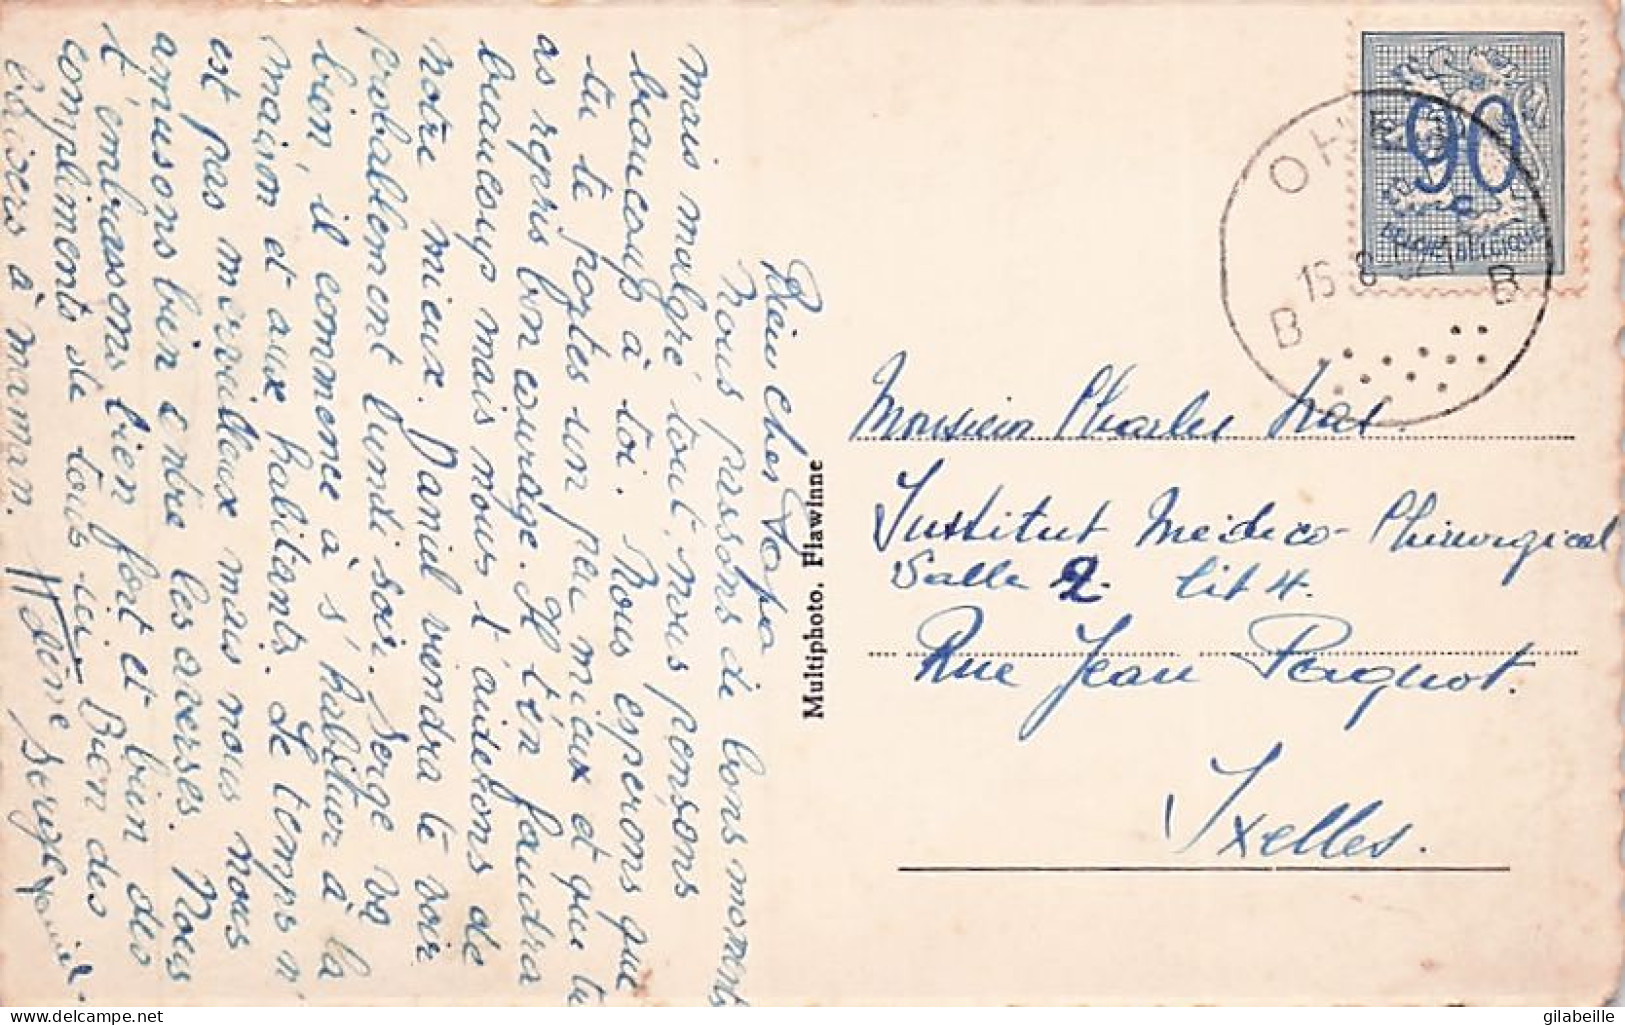 Bien cher Papa
Nous passons de bons moments
mais malgré tout, nous pensons
beaucoup à toi. Nous esperons que
tu te portes un peu mieux et que tu
as repris bon courage. Il t'en faudra
beaucoup mais nous t'aiderons de
notre mieux. Daniel viendra te voir
probablement lundi soir. Serge va
bien, il commence à s'habituer à la
maison et aux habitants. Le temps n'
est pas merveilleux mais nous nous
amusons bien entre les averses. Nous
t'embrassons bien fort et bien des
compliments de tous ici. Bien des
baisers à maman. Hélène Serge Daniel.
Multiphoto. Flawinne
90
c
BELGIE-BELGIQUE
OH
15-8-52
B B
Monsieur Charles
Institut Medico-Chirurgical
Salle 2. lit 4.
Rue Jean Paquot.
Ixelles.
delcampe.net
gilabeille